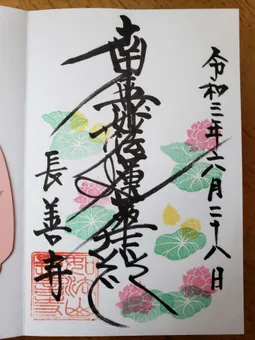 令和三年六月二十八日
南無妙法蓮華経
長善寺